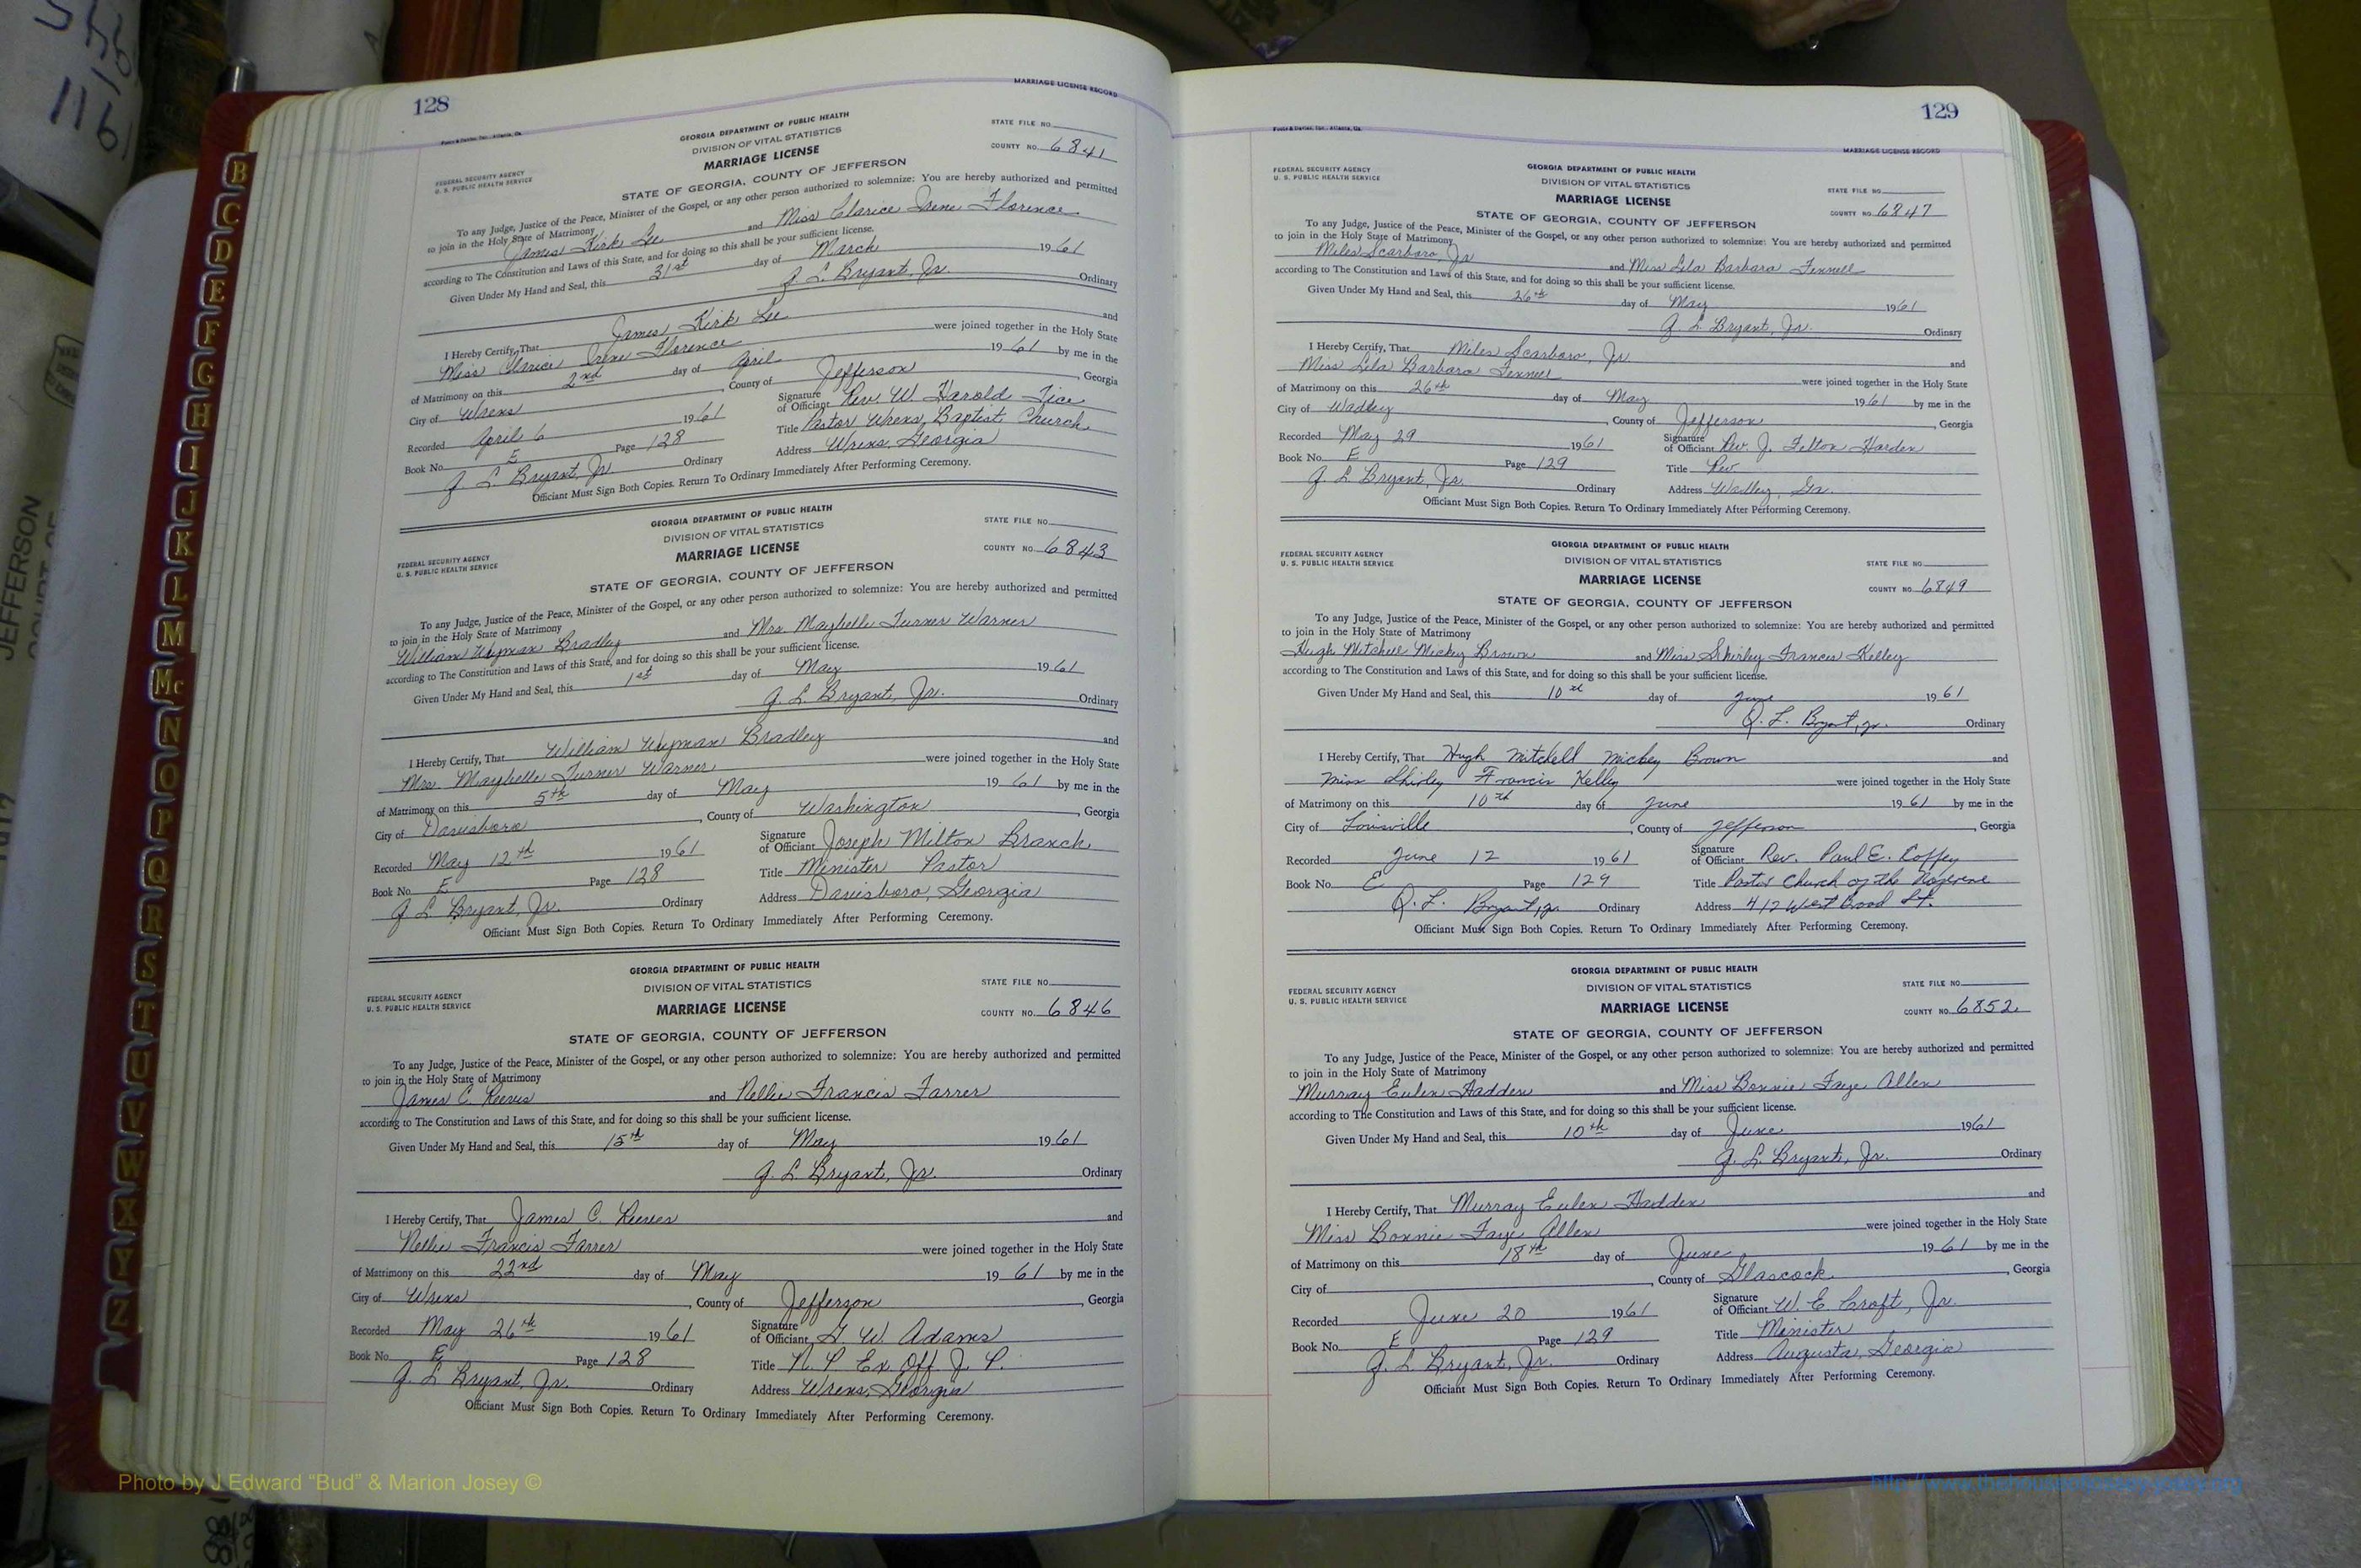 128
MARRIAGE LICENSE RECORD
Foote & Davies, Inc., Atlanta, Ga.
GEORGIA DEPARTMENT OF PUBLIC HEALTH
DIVISION OF VITAL STATISTICS
MARRIAGE LICENSE
STATE OF GEORGIA, COUNTY OF JEFFERSON
FEDERAL SECURITY AGENCY
U. S. PUBLIC HEALTH SERVICE
STATE FILE NO.
COUNTY NO. 6841
To any Judge, Justice of the Peace, Minister of the Gospel, or any other person authorized to solemnize: You are hereby authorized and permitted
to join in the Holy State of Matrimony
James Kirk Lee and Miss Clarice Irene Florence
according to The Constitution and Laws of this State, and for doing so this shall be your sufficient license.
Given Under My Hand and Seal, this 31st day of March 1961
Q. L. Bryant, Jr. Ordinary
I Hereby Certify, That James Kirk Lee and
Miss Clarice Irene Florence were joined together in the Holy State
of Matrimony on this 2nd day of April 1961 by me in the
City of Wrens, County of Jefferson, Georgia
Recorded April 6 1961 Signature of Officiant Rev. W. Harold Tice
Book No. E Page 128 Title Pastor Wrens Baptist Church
Q. L. Bryant, Jr. Ordinary Address Wrens, Georgia
Officiant Must Sign Both Copies. Return To Ordinary Immediately After Performing Ceremony.
GEORGIA DEPARTMENT OF PUBLIC HEALTH
DIVISION OF VITAL STATISTICS
MARRIAGE LICENSE
STATE OF GEORGIA, COUNTY OF JEFFERSON
FEDERAL SECURITY AGENCY
U. S. PUBLIC HEALTH SERVICE
STATE FILE NO.
COUNTY NO. 6843
To any Judge, Justice of the Peace, Minister of the Gospel, or any other person authorized to solemnize: You are hereby authorized and permitted
to join in the Holy State of Matrimony
William Wyman Bradley and Mrs Maybelle Turner Warner
according to The Constitution and Laws of this State, and for doing so this shall be your sufficient license.
Given Under My Hand and Seal, this 1st day of May 1961
Q. L. Bryant, Jr. Ordinary
I Hereby Certify, That William Wyman Bradley and
Mrs. Maybelle Turner Warner were joined together in the Holy State
of Matrimony on this 5th day of May 1961 by me in the
City of Davisboro, County of Washington, Georgia
Recorded May 12th 1961 Signature of Officiant Joseph Milton Branch
Book No. E Page 128 Title Minister Pastor
Q. L. Bryant, Jr. Ordinary Address Davisboro, Georgia
Officiant Must Sign Both Copies. Return To Ordinary Immediately After Performing Ceremony.
GEORGIA DEPARTMENT OF PUBLIC HEALTH
DIVISION OF VITAL STATISTICS
MARRIAGE LICENSE
STATE OF GEORGIA, COUNTY OF JEFFERSON
FEDERAL SECURITY AGENCY
U. S. PUBLIC HEALTH SERVICE
STATE FILE NO.
COUNTY NO. 6846
To any Judge, Justice of the Peace, Minister of the Gospel, or any other person authorized to solemnize: You are hereby authorized and permitted
to join in the Holy State of Matrimony
James C. Reeves and Nellie Francis Farrer
according to The Constitution and Laws of this State, and for doing so this shall be your sufficient license.
Given Under My Hand and Seal, this 15th day of May 1961
Q. L. Bryant, Jr. Ordinary
I Hereby Certify, That James C. Reeves and
Nellie Francis Farrer were joined together in the Holy State
of Matrimony on this 22nd day of May 1961 by me in the
City of Wrens, County of Jefferson, Georgia
Recorded May 26th 1961 Signature of Officiant G. W. Adams
Book No. E Page 128 Title N. P. Ex. Off. J. P.
Q. L. Bryant, Jr. Ordinary Address Wrens, Georgia
Officiant Must Sign Both Copies. Return To Ordinary Immediately After Performing Ceremony.
129
Foote & Davies, Inc., Atlanta, Ga.
MARRIAGE LICENSE RECORD
GEORGIA DEPARTMENT OF PUBLIC HEALTH
DIVISION OF VITAL STATISTICS
MARRIAGE LICENSE
STATE OF GEORGIA, COUNTY OF JEFFERSON
FEDERAL SECURITY AGENCY
U. S. PUBLIC HEALTH SERVICE
STATE FILE NO.
COUNTY NO. 6847
To any Judge, Justice of the Peace, Minister of the Gospel, or any other person authorized to solemnize: You are hereby authorized and permitted
to join in the Holy State of Matrimony
Miles Scarboro, Jr and Miss Lila Barbara Fennell
according to The Constitution and Laws of this State, and for doing so this shall be your sufficient license.
Given Under My Hand and Seal, this 26th day of May 1961
Q. L. Bryant, Jr. Ordinary
I Hereby Certify, That Miles Scarboro, Jr. and
Miss Lila Barbara Fennell were joined together in the Holy State
of Matrimony on this 26th day of May 1961 by me in the
City of Wadley, County of Jefferson, Georgia
Recorded May 29 1961 Signature of Officiant Rev. J. Felton Harden
Book No. E Page 129 Title Rev.
Q. L. Bryant, Jr. Ordinary Address Wadley, Ga.
Officiant Must Sign Both Copies. Return To Ordinary Immediately After Performing Ceremony.
GEORGIA DEPARTMENT OF PUBLIC HEALTH
DIVISION OF VITAL STATISTICS
MARRIAGE LICENSE
STATE OF GEORGIA, COUNTY OF JEFFERSON
FEDERAL SECURITY AGENCY
U. S. PUBLIC HEALTH SERVICE
STATE FILE NO.
COUNTY NO. 6849
To any Judge, Justice of the Peace, Minister of the Gospel, or any other person authorized to solemnize: You are hereby authorized and permitted
to join in the Holy State of Matrimony
Hugh Mitchell Mickey Brown and Miss Shirley Francis Kelley
according to The Constitution and Laws of this State, and for doing so this shall be your sufficient license.
Given Under My Hand and Seal, this 10th day of June 1961
Q. L. Bryant, Jr. Ordinary
I Hereby Certify, That Hugh Mitchell Mickey Brown and
Miss Shirley Francis Kelley were joined together in the Holy State
of Matrimony on this 10th day of June 1961 by me in the
City of Louisville, County of Jefferson, Georgia
Recorded June 12 1961 Signature of Officiant Rev. Paul E. Coffey
Book No. E Page 129 Title Pastor Church of the Nazerene
Q. L. Bryant, Jr. Ordinary Address 412 West Broad St.
Officiant Must Sign Both Copies. Return To Ordinary Immediately After Performing Ceremony.
GEORGIA DEPARTMENT OF PUBLIC HEALTH
DIVISION OF VITAL STATISTICS
MARRIAGE LICENSE
STATE OF GEORGIA, COUNTY OF JEFFERSON
FEDERAL SECURITY AGENCY
U. S. PUBLIC HEALTH SERVICE
STATE FILE NO.
COUNTY NO. 6852
To any Judge, Justice of the Peace, Minister of the Gospel, or any other person authorized to solemnize: You are hereby authorized and permitted
to join in the Holy State of Matrimony
Murray Eulen Hadden and Miss Bonnie Faye Allen
according to The Constitution and Laws of this State, and for doing so this shall be your sufficient license.
Given Under My Hand and Seal, this 10th day of June 1961
Q. L. Bryant, Jr. Ordinary
I Hereby Certify, That Murray Eulen Hadden and
Miss Bonnie Faye Allen were joined together in the Holy State
of Matrimony on this 18th day of June 1961 by me in the
City of , County of Glascock, Georgia
Recorded June 20 1961 Signature of Officiant W. E. Croft, Jr.
Book No. E Page 129 Title Minister
Q. L. Bryant, Jr. Ordinary Address Augusta, Georgia
Officiant Must Sign Both Copies. Return To Ordinary Immediately After Performing Ceremony.
B
C
D
E
F
G
H
I
J
K
L
M
Mc
N
O
P
Q
R
S
T
U
V
W
X
Y
Z
JEFFERSON
Photo by J Edward “Bud” & Marion Josey ©